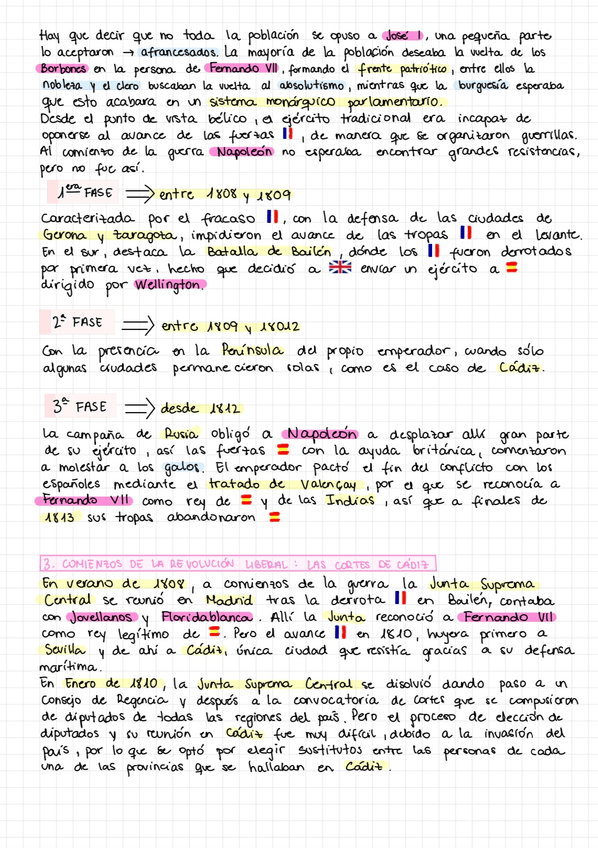 Hay que decir que no toda la población se opuso a José I, una pequeña parte
lo aceptaron → afrancesados. La mayoría de la población deseaba la vuelta de los
Borbones en la persona de Fernando VII, formando el frente patriótico, entre ellos la
nobleza y el clero buscaban la vuelta al absolutismo, mientras que la burguesía esperaba
que esto acabara en un sistema monárquico parlamentario.
Desde el punto de vista bélico, el ejército tradicional era incapaz de
oponerse al avance de las fuerzas 🇫🇷, de manera que se organizaron guerrillas.
Al comienzo de la guerra Napoleón no esperaba encontrar grandes resistencias,
pero no fue así.
1era FASE ⟹ entre 1808 y 1809
Caracterizada por el fracaso 🇫🇷, con la defensa de las ciudades de
Gerona y Zaragoza, impidieron el avance de las tropas 🇫🇷 en el levante.
En el sur, destaca la Batalla de Bailén, dónde los 🇫🇷 fueron derrotados
por primera vez, hecho que decidió a 🇬🇧 enviar un ejército a 🇪🇸
dirigido por Wellington.
2ª FASE ⟹ entre 1809 y 18012
Con la presencia en la Península del propio emperador, cuando sólo
algunas ciudades permanecieron solas, como es el caso de Cádiz.
3ª FASE ⟹ desde 1812
La campaña de Rusia obligó a Napoleón a desplazar allí gran parte
de su ejército, así las fuerzas 🇪🇸 con la ayuda británica, comenzaron
a molestar a los galos. El emperador pactó el fin del conflicto con los
españoles mediante el tratado de Valençay, por el que se reconocía a
Fernando VII como rey de 🇪🇸 y de las Indias, así que a finales de
1813 sus tropas abandonaron 🇪🇸
3. COMIENZOS DE LA REVOLUCIÓN LIBERAL: LAS CORTES DE CÁDIZ
En verano de 1808, a comienzos de la guerra la Junta Suprema
Central se reunió en Madrid tras la derrota 🇫🇷 en Bailén, contaba
con Jovellanos y Floridablanca. Allí la Junta reconoció a Fernando VII
como rey legítimo de 🇪🇸. Pero el avance 🇫🇷 en 1810, huyera primero a
Sevilla y de ahí a Cádiz, única ciudad que resistía gracias a su defensa
marítima.
En Enero de 1810, la Junta Suprema Central se disolvió dando paso a un
Consejo de Regencia y después a la convocatoria de Cortes que se compusieron
de diputados de todas las regiones del país. Pero el proceso de elección de
diputados y su reunión en Cádiz fue muy difícil, debido a la invasión del
país, por lo que se optó por elegir sustitutos entre las personas de cada
una de las provincias que se hallaban en Cádiz.